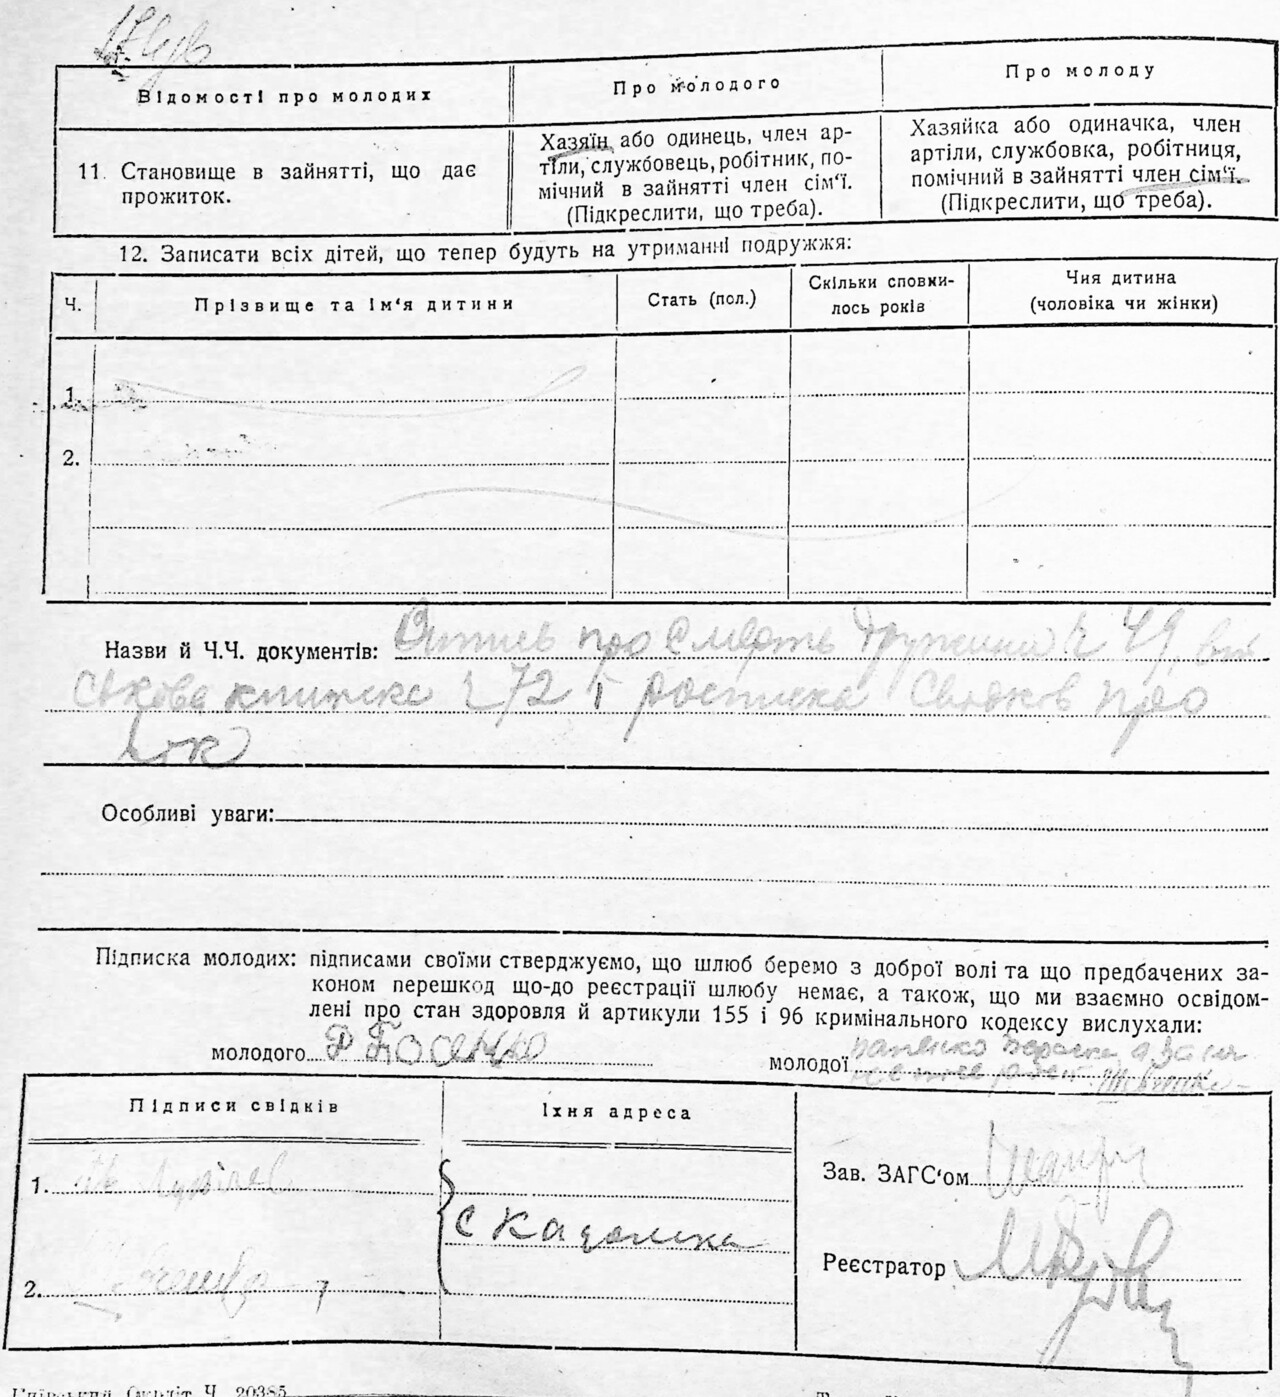 Відомості про молодих
Про молодого
Про молоду
11. Становище в зайнятті, що дає
прожиток.
Хазяїн або одинець, член ар-
тіли, службовець, робітник, по-
мічний в зайнятті член сім'ї.
(Підкреслити, що треба).
Хазяйка або одиначка, член
артіли, службовка, робітниця,
помічний в зайнятті член сім'ї.
(Підкреслити, що треба).
12. Записати всіх дітей, що тепер будуть на утриманні подружжя:
Ч.
Прізвище та ім'я дитини
Стать (пол.)
Скільки сповни-
лось років
Чия дитина
(чоловіка чи жінки)
1.
2.
Назви й Ч.Ч. документів: Витяг про смерть дружини ч 49, вій
ськова книжка ч 72 і росписка свідків про
Особливі уваги:
Підписка молодих: підписами своїми стверджуємо, що шлюб беремо з доброї волі та що предбачених за-
коном перешкод що-до реєстрації шлюбу немає, а також, що ми взаємно освідом-
лені про стан здоровля й артикули 155 і 96 кримінального кодексу вислухали:
молодого
молодої
Підписи свідків
Їхня адреса
1.
2.
с
Зав. ЗАГС'ом
Реєстратор
Київський Окрліт Ч. 20385